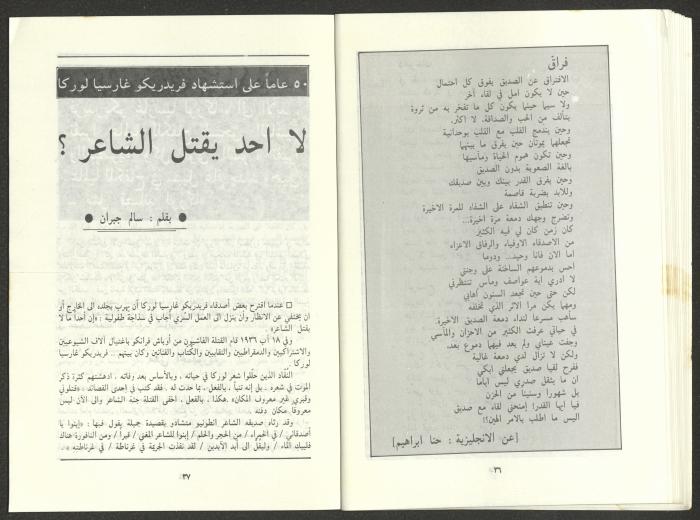 فراقٌ
الافتراق عن الصديق يفوق كل احتمال
حين لا يكون امل في لقاء آخر
ولا سيما حينما يكون كل ما تفخر به من ثروة
يتألف من الحب والصداقة. لا اكثر.
وحين يندمج القلب مع القلب بوحدانية
تجعلهما يموتان حين يفرق ما بينهما
وحين تكون هموم الحياة ومآسيها
بالغة الصعوبة بدون الصديق
وحين يفرق القدر بينك وبين صديقك
وللابد بضربة قاصمة
وحين تنطبق الشفاه على الشفاه للمرة الاخيرة
وتضرج وجهك دمعة مرة اخيرة...
كان زمن كان لي فيه الكثير
من الاصدقاء الاوفياء والرفاق الاعزاء
اما الان فانا وحيد... ودوما
احس بدموعهم الساخنة على وجنتي
لا ادري اية عواصف ومآس تنتظرني
لكن حتى حين تجعد السنون اهابي
ومهما يكن مرا الاثر الذي تخلفه
سأهب مسرعا لنداء دمعة الصديق الاخيرة.
في حياتي عرفت الكثير من الاحزان والمآسي
وجفت عيناي ولم يعد فيهما دموع بعد.
ولكن لا تزال لدي دمعة غالية
ففرح لقيا صديق يجعلني ابكي
ان ما يثقل صدري ليس اياما
بل شهورا وسنينا من الحزن
فيا ايها القدر! إمنحني لقاء مع صديق
اليس ما اطلب بالامر الهين؟!
[عن الانجليزية : حنا ابراهيم]
٣٦
٥٠ عاماً على استشهاد فريدريكو غارسيا لوركا
لا احد يقتل الشاعر ؟
● بقلم : سالم جبران ●
□ عندما اقترح بعض أصدقاء فريدريكو غارسيا لوركا أن يهرب بجلده الى الخارج أو
ان يختفي عن الانظار وأن ينزل الى العمل السّري أجاب في سذاجة طفولية : «إن أحداً ما لا
يقتل الشاعر»
وفي ١٨ آب ١٩٣٦ قام القتلة الفاشيون من أوباش فرانكو باغتيال آلاف الشيوعيين
والاشتراكيين والدمقراطيين والنقابيين والكُتّاب والفنانين وكان بينهم .. فريدريكو غارسيا
لوركا .
النُقاد الذين حلّلوا شعر لوركا في حياته . وبالأساس بعد وفاته . ادهشتهم كثرة ذكر
الموت في شعره . بل إنه تنبأ . بالفعل . بما حدث له . فقد كتب في إحدى القصائد : «قتلوني
وقبري غير معروف المكان» .هكذا . بالفعل . اخفى القتلة جثة الشاعر والى الآن ليس
معروفاً مكان دفنه .
وقد رثاه صديقه الشاعر انطونيو متشادو بقصيدة جميلة يقول فيها : «إبنوا يا
أصدقائي / في الحمراء / من الحجر والحلم / إبنوا للشاعر المغني / قبرا / ومن النافورة هناك
فليبك الماء / وليقُل الى أبد الآبدين / لقد نفذت الجريمة في غرناطة / في غرناطته» .
٣٧